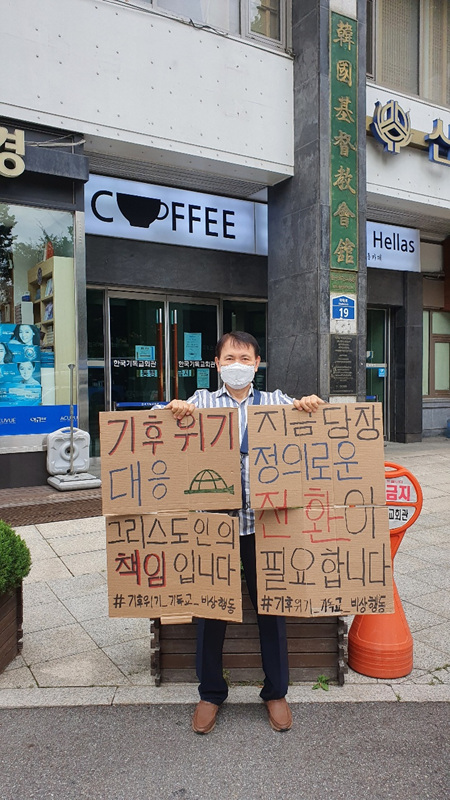 韓國基督敎會館
경
COFFEE
Hellas
19
한국기독교회관
한국기독교회관
ACUVUE
기후위기
대응
그리스도인의
책임입니다
#기후위기_기독교_비상행동
지금 당장
정의로운
전환이
필요합니다
#기후위기_기독교_비상행동
금지